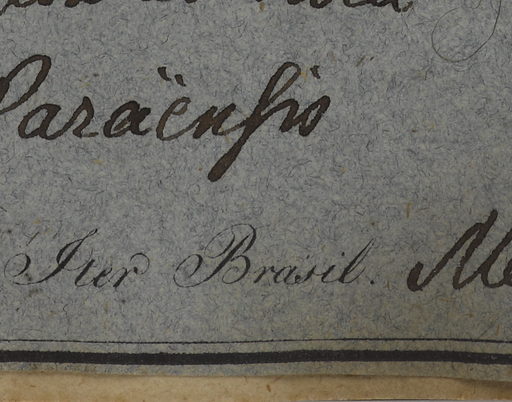 Paraënsis
Iter Brasil. M